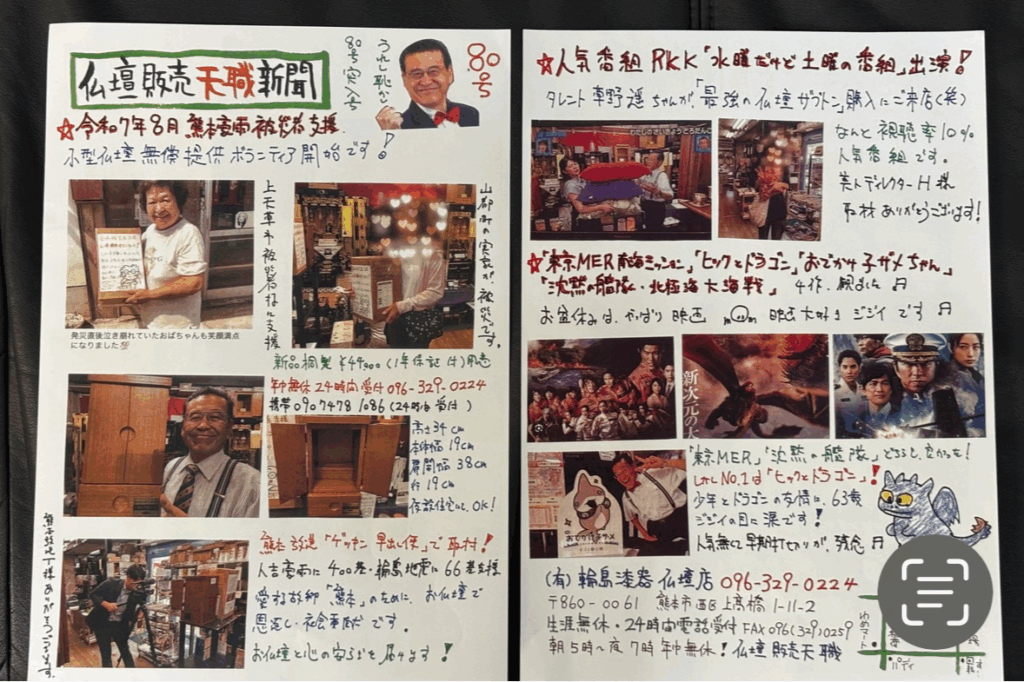 仏壇販売天職新聞
80号突入号
うれし恥かし
80号
☆令和7年8月 熊本豪雨被災者支援
小型仏壇無償提供ボランティア開始です!
上天草市被災者様に支援
山都町の実家が被災です。
発災直後泣き崩れていたおばちゃんも笑顔満点
になりました
新品桐製 ¥44,000(1年保証付)用意
年中無休24時間受付 096-329-0224
携帯 090 7478 1086(24時間受付)
高さ34cm
本体幅19cm
扉開幅38cm
行19cm
仮設住宅にも、OK!
熊本放送「ゲツキン早出し便」で取材!
人吉豪雨に400基・輪島地震に66基支援
愛する故郷「熊本」のために、お仏壇で
恩返し・社会事業です。
お仏壇と心の安らぎを届けます!
☆人気番組RKK「水曜だけど土曜の番組」出演!
タレント草野遥ちゃんが、「最強の仏壇ザブトン」購入にご来店(笑)
わたしのさいきょう
なんと視聴率10%
人気番組です。
美人ディレクターH様
取材ありがとうございます!
☆「東京MER南海ミッション」「ヒックとドラゴン」「おでかけ子ザメちゃん」
「沈黙の艦隊・北極海大海戦」 4作、観ました♬
お盆休みは、やっぱり映画 映画大好きジジイです♬
新次元の
おでかけ子ザメ
「東京MER」「沈黙の艦隊」どちらも、良かった!
しかしNo.1は「ヒックとドラゴン」!
少年とドラゴンの友情に、63歳
ジジイの目に涙です!
人気無くて早期打切りが、残念♬
(有)輪島漆器仏壇店 096-329-0224
〒860-0061 熊本市西区上高橋1-11-2
生涯無休・24時間電話受付 FAX096(329)0259
朝5時~夜7時 年中無休!仏壇販売天職
ゆめマート